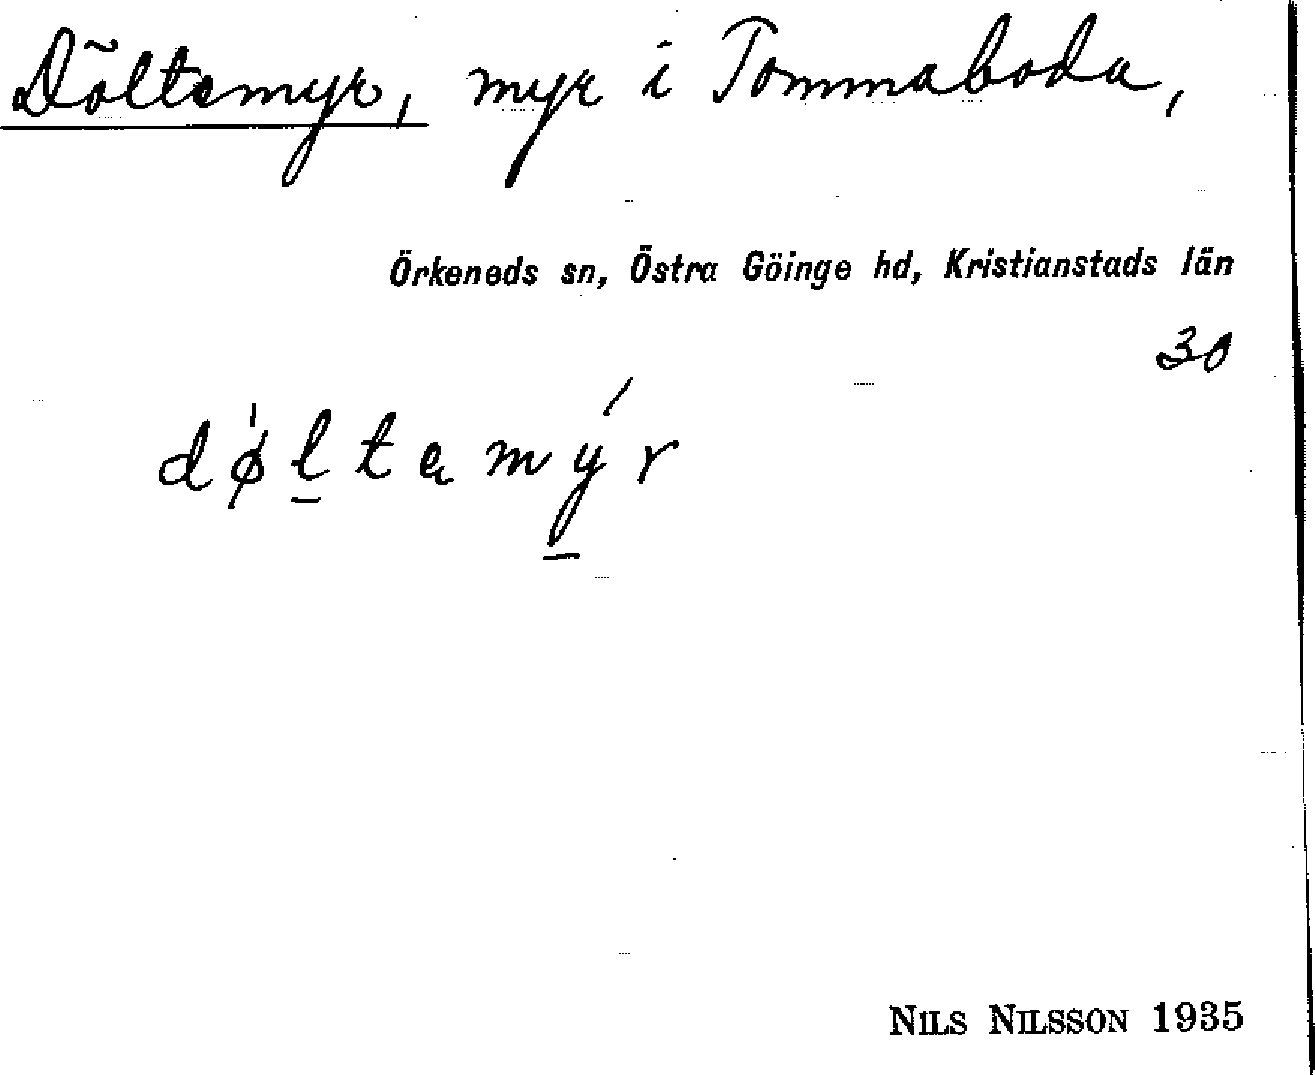 Döltemyr, myr i Tommaboda,
Örkeneds sn, Östra Göinge hd, Kristianstads län
30
dø̍l̲tamý̲r
NILS NILSSON 1935